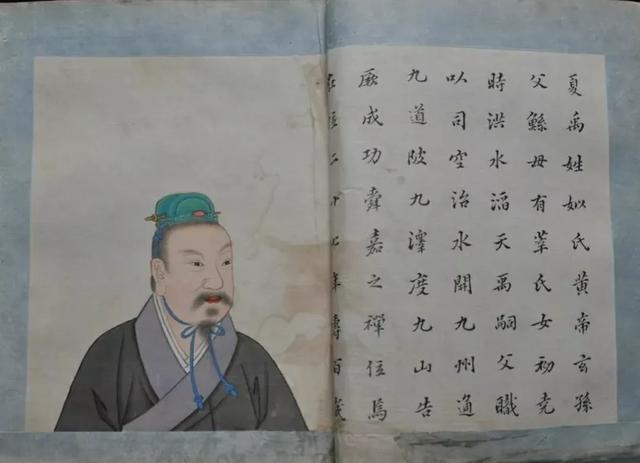 夏禹姓姒氏黃帝玄孫
父鯀母有莘氏女初堯
時洪水滔天禹嗣父職
以司空治水開九州通
九道陂九澤度九山告
厥成功舜嘉之禪位焉
在位年壽百歲